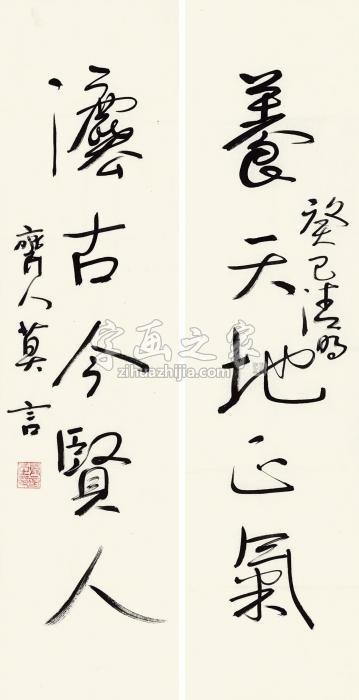 養天地正氣
癸巳清明
灋古今賢人
齊人莫言
字画之家
zihuazhijia.com